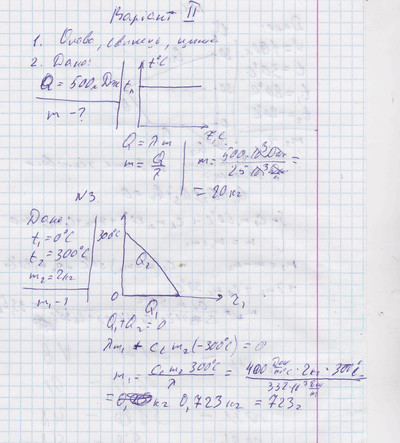 Варіант II
1. Олово, свинець, цинк
2. Дано:
Q = 500к Дж
m - ?
t°C
tп
τ, c
Q = λm
m = Q/λ
m = 500·10³Дж / 25·10³ Дж/кг =
= 20 кг
№3
Дано:
t₁ = 0°C
t₂ = 300°C
m₂ = 2кг
m₁ - ?
300°C
Q₂
0
Q₁
τ,
Q₁ + Q₂ = 0
λm₁ + Cc m₂ (-300°C) = 0
m₁ = Cc m₂ 300°C / λ =
= кг 0,723 кг = 723г